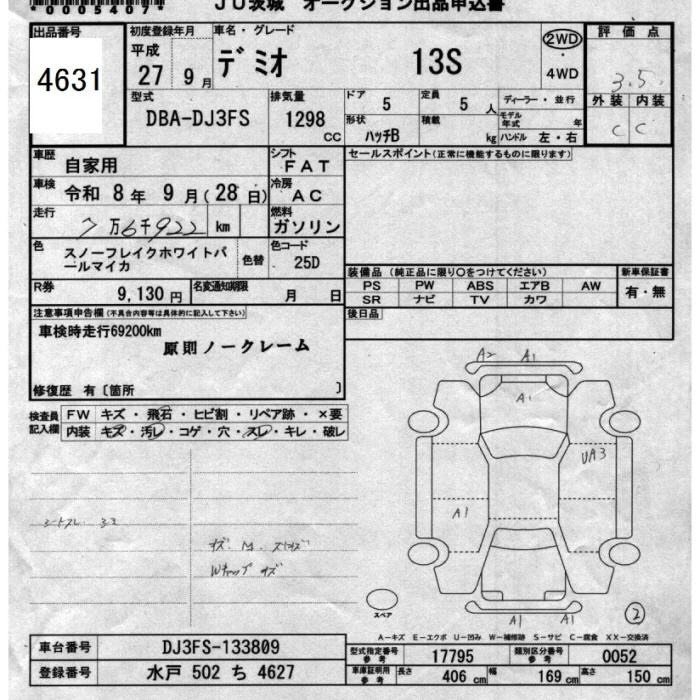 *0005407*
JU茨城 オークション出品申込書
出品番号
4631
初度登録年月
平成
27年 9月
車名・グレード
デミオ 13S
2WD
・
4WD
評価点
3.5
外装 内装
C C
型式
DBA-DJ3FS
排気量
1298
CC
ドア
5
定員
5人
形状
ハッチB
積載
kg
ディーラー・並行
モデル年式 年
ハンドル 左・右
車歴
自家用
シフト
FAT
セールスポイント(正常に機能するものに限ります)
車検
令和 8年 9月(28日)
冷房
AC
走行
7万6千922 km
燃料
ガソリン
色
スノーフレイクホワイトパ
ールマイカ
色替
色コード
25D
装備品 (純正品に限り○をつけてください)
PS PW ABS エアB AW
SR ナビ TV カワ
新車保証書
有・無
R券
9,130円
名変通知期限
月 日
後日品
注意事項申告欄(不具合内容等は具体的に記入して下さい)
車検時走行69200km
原則ノークレーム
修復歴 有〔箇所 〕
検査員
記入欄
FW キズ・飛石・ヒビ割・リペア跡・×要
内装 キズ・汚レ・コゲ・穴・スレ・キレ・破レ
A2 A1
A1
UA3
A1
シートスレ
Wキャップ キズ
スペア
A1 A1
2
A-キズ E-エクボ U-凹み W-補修跡 S-サビ C-腐食 XX-交換済
車台番号 DJ3FS-133809
登録番号 水戸 502 ち 4627
型式指定番号
参考
17795
類別区分番号
参考
0052
車庫証明用
参考
長さ 406cm
幅 169cm
高さ 150cm